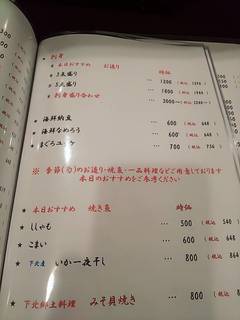 ★ 刺身
★ 本日おすすめ お造り 時価
★ 3点盛り … 1200 (税込 1296)
★ 5点盛り … 1800 (税込 1944)
★ 刺身盛り合わせ … 3000~ (税込
★ 海鮮納豆 … 600 (税込 648)
★ 海鮮なめろう … 600 (税込 648
★ まぐろユッケ … 700 (税込 756)
※ 季節(旬)のお造り・焼魚・一品料理などご用意しております
本日のおすすめをご参考ください
★ 本日おすすめ 焼き魚 時価
★ ししゃも … 500 (税込 540)
★ こまい … 600 (税込 648
★ 下北産 いか一夜干し … 800 (税込
★ 下北郷土料理 みそ貝焼き … 800 (税込 864